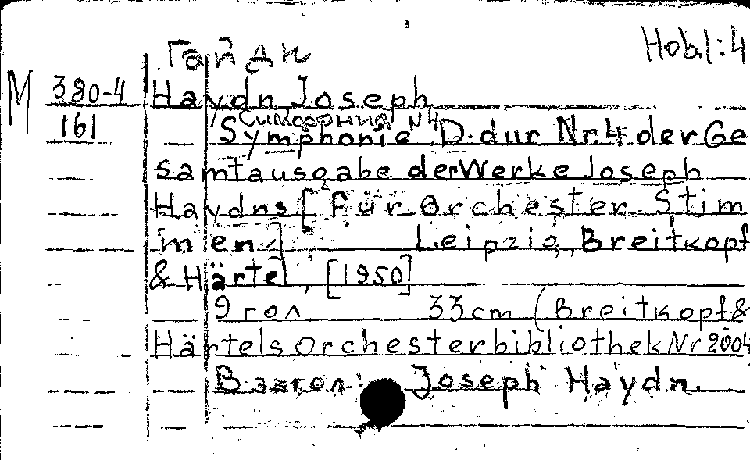 Гайдн
Нов.1:4
М 380-4 Haydn Joseph
Симфония N4
161 Symphonie D-dur Nr.4 der Ge
samtausgabe der Werke Joseph
Haydns [Für Orchester Stim
men] Leipzig, Breitkopf
& Härtel, [1950]
9 гол 33 cm (Breitkopf &
Härtels Orchesterbibliothek Nr 2004
В загол: Joseph Haydn.